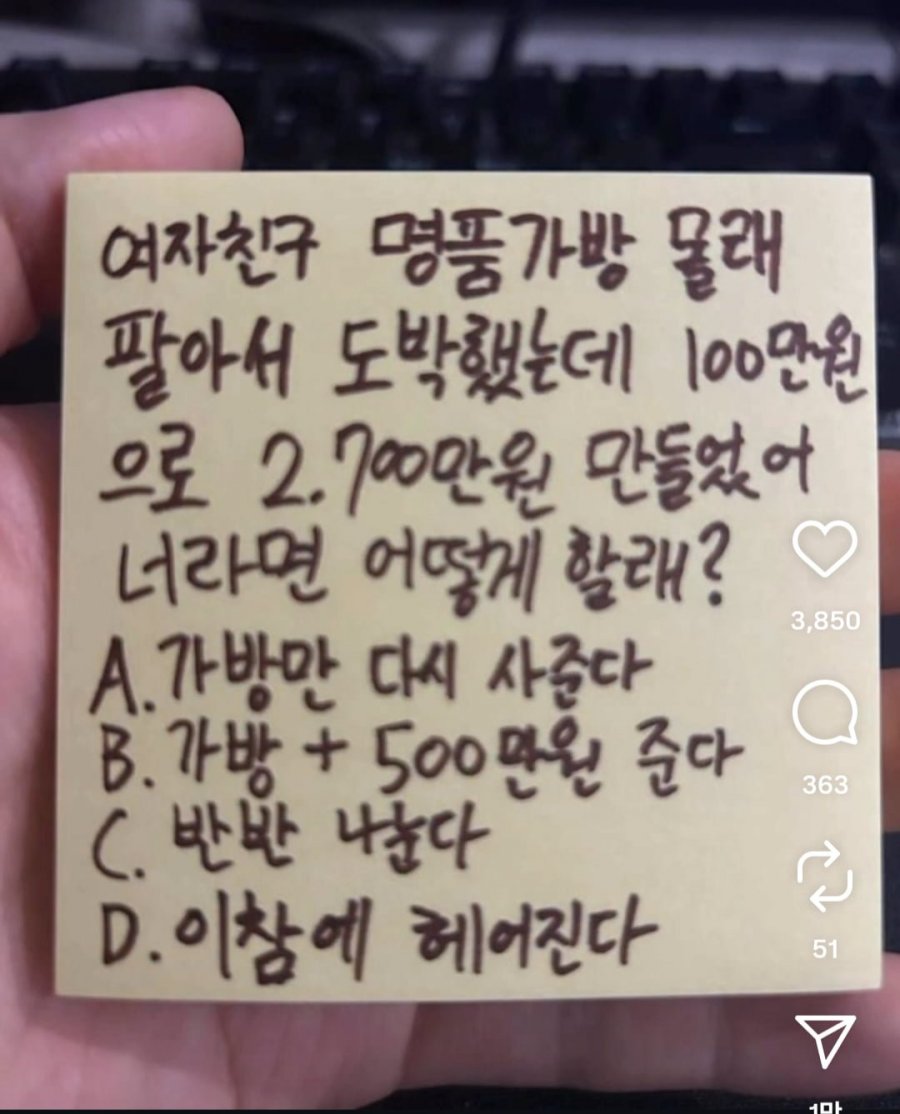 여자친구 명품가방 몰래
팔아서 도박했는데 100만원
으로 2.700만원 만들었어
너라면 어떻게 할래?
A. 가방만 다시 사준다
B. 가방 + 500만원 준다
C. 반반 나눈다
D. 이참에 헤어진다
3,850
363
51